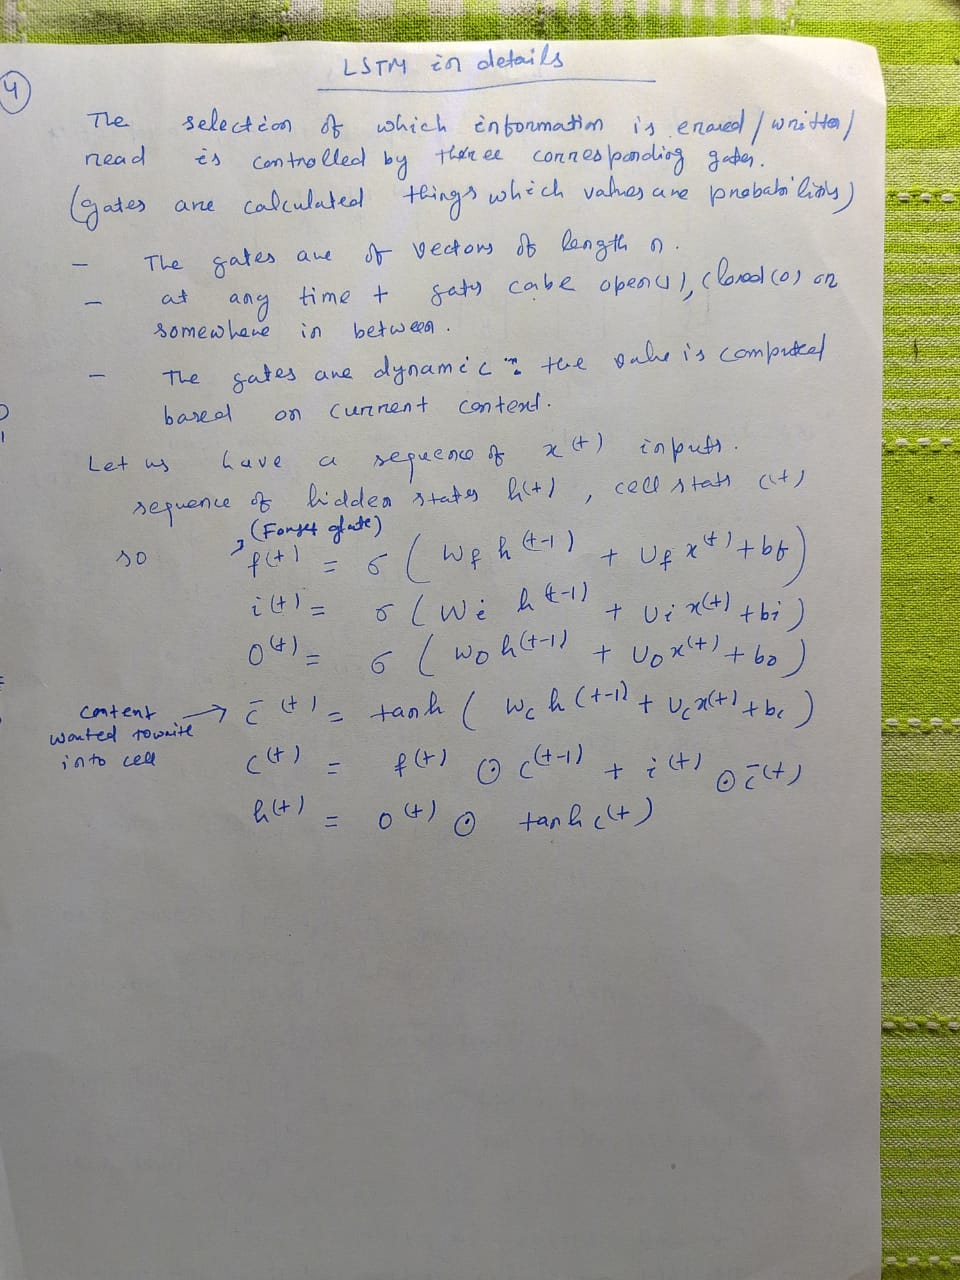 4
LSTM in details
The selection of which information is erased/written/
read is controlled by three corresponding gates.
(gates are calculated things which values are probabilities)
- The gates are of vectors of length n.
- at any time t gats cabe open(1), closed(0) or
somewhere in between.
- The gates are dynamic : the value is computed
based on current context.
Let us have a sequence of x(t) inputs.
sequence of hidden states h(t), cell stats c(t)
(Forget gate)
so f(t) = σ ( Wf h(t-1) + Uf x(t) + bf )
i(t) = σ ( Wi h(t-1) + Ui x(t) + bi )
o(t) = σ ( Wo h(t-1) + Uo x(t) + bo )
content wanted to write into cell → c̄(t) = tanh ( Wc h(t-1) + Uc x(t) + bc )
c(t) = f(t) ⊙ c(t-1) + i(t) ⊙ c̄(t)
h(t) = o(t) ⊙ tanh c(t)